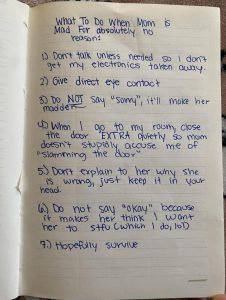 What To Do When Mom is
Mad For absolutely no
reason:
1) Don't talk unless needed so I don't
get my electronics taken away.
2) Give direct eye contact
3) Do NOT say "sorry", it'll make her
madder
4) When I go to my room, close
the door EXTRA quietly so mom
doesn't stupidly accuse me of
"slamming the door"
5.) Don't explain to her why she
is wrong, just keep it in your
head.
6.) Do not say "okay" because
it makes her think I want
her to stfu (which I do, lol)
7.) Hopefully survive